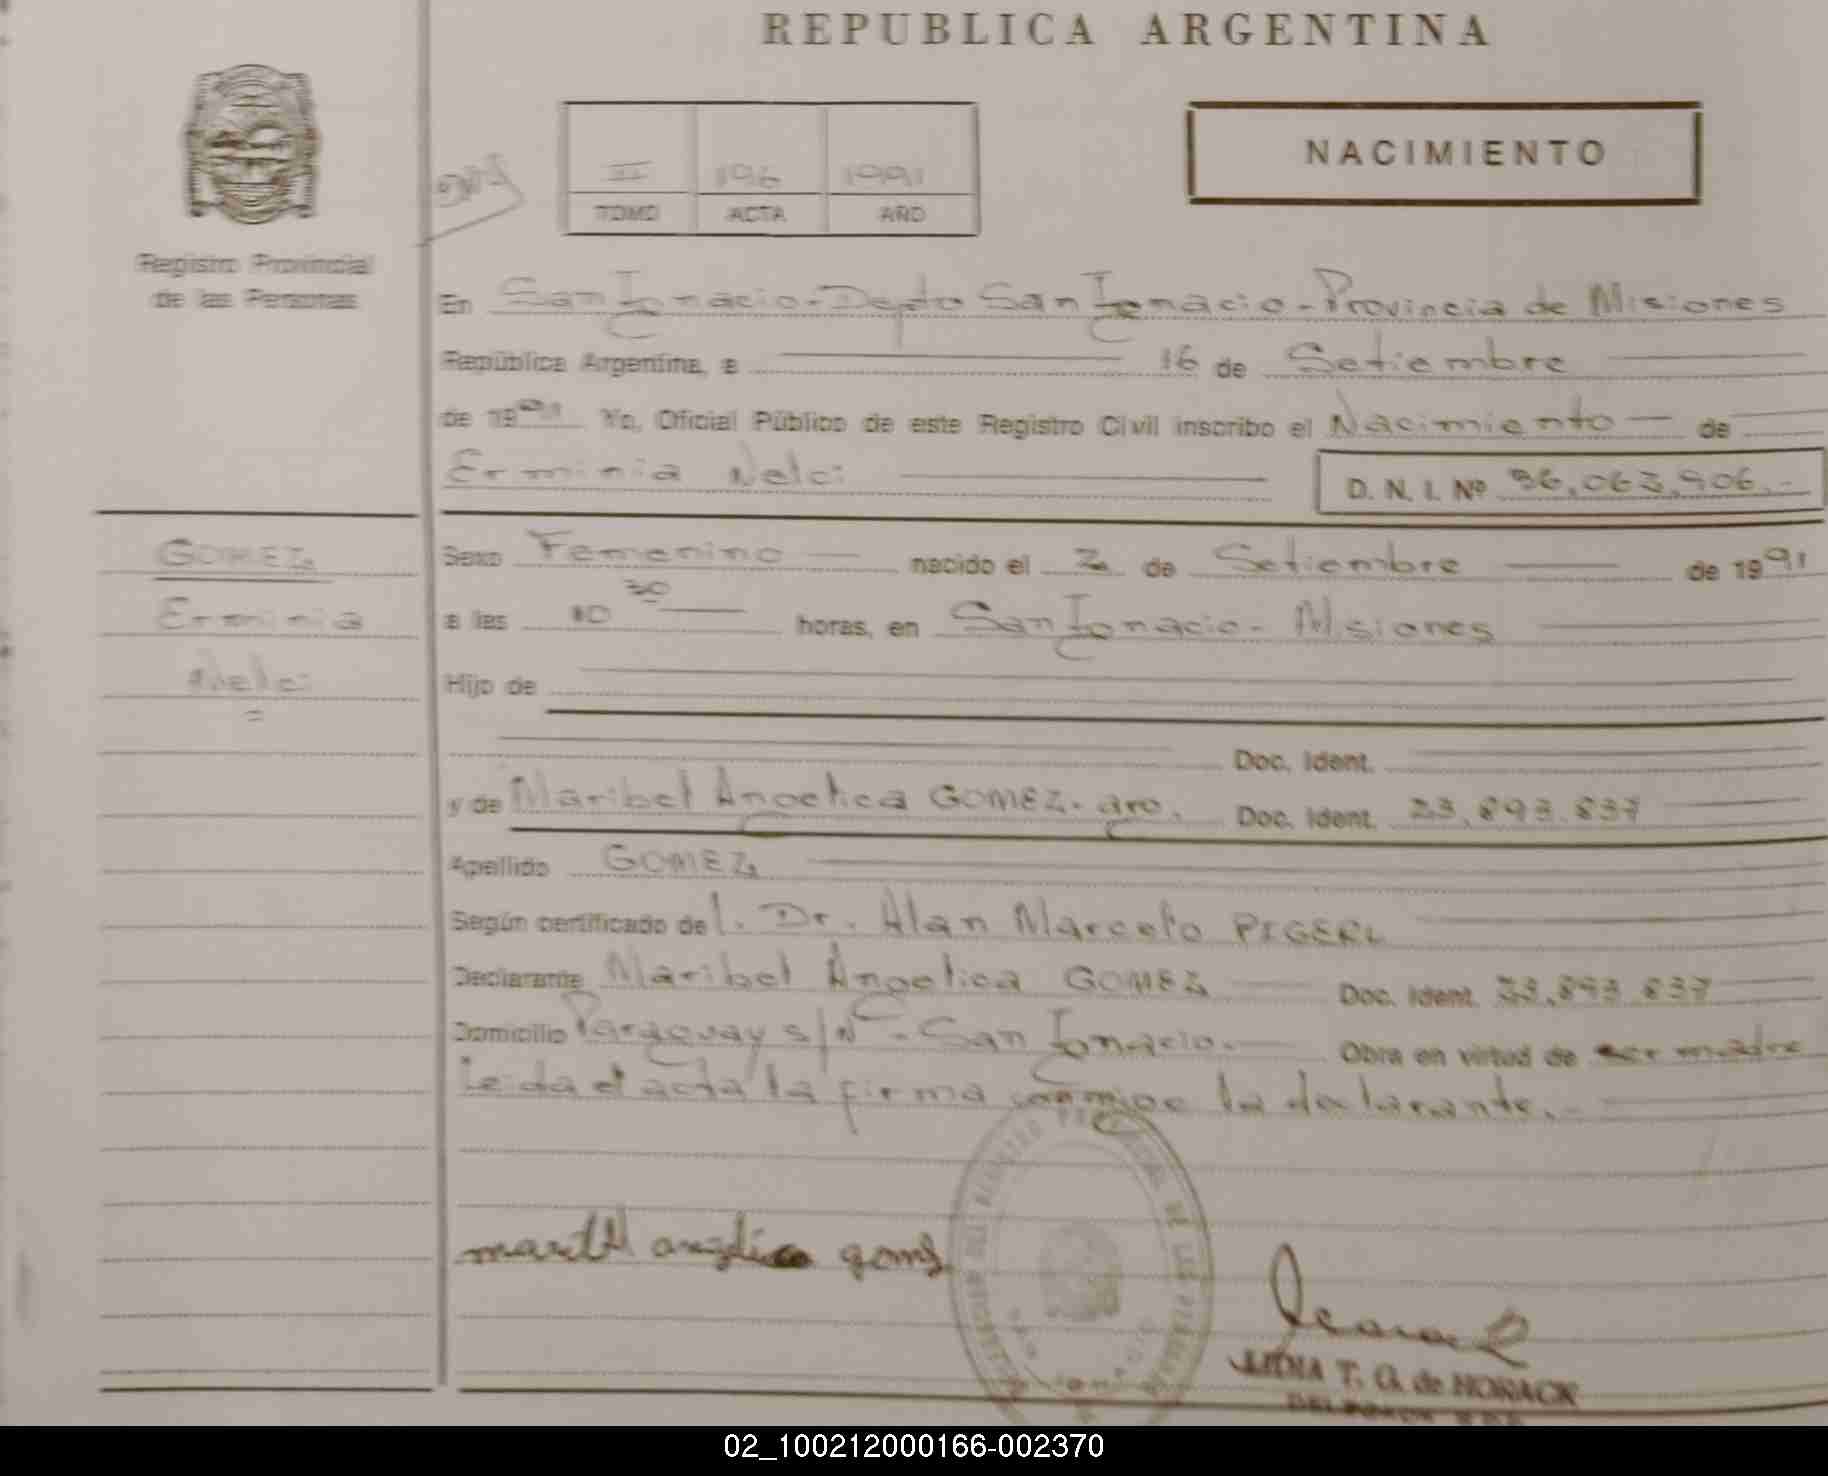 REPUBLICA ARGENTINA
NACIMIENTO
II 196 1991
TOMO ACTA AÑO
Registro Provincial
de las Personas
En San Ignacio - Depto San Ignacio - Provincia de Misiones
República Argentina, a 16 de Setiembre
de 1991 Yo, Oficial Público de este Registro Civil inscribo el Nacimiento de
Erminia Nelci D. N. I. Nº 36,063,906.-
GOMEZ
Erminia
Nelci
Sexo Femenino nacido el 2 de Setiembre de 1991
a las 10 30 horas, en San Ignacio - Misiones
Hijo de
Doc. Ident.
y de Maribel Angelica GOMEZ - arg. Doc. Ident. 23.893.837
Apellido GOMEZ
Según certificado del. Dr. Alan Marcelo PIGERL
Declarante Maribel Angelica GOMEZ Doc. Ident. 23.893.837
Domicilio Paraguay s/Nº - San Ignacio. Obra en virtud de ser madre
Leida el acta la firma conmigo la declarante.-
angelica
LIDIA T. G. de HORACK
02_100212000166-002370